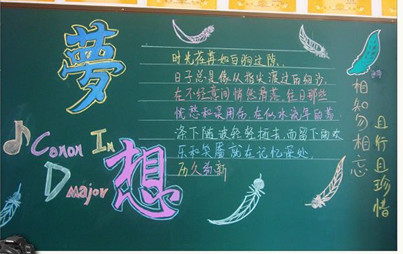 夢
想
♪Canon In
D major
时光荏苒如白驹过隙,
日子总是像从指尖渡过的细沙,
在不经意间悄然滑落,往日那些
忧愁和误用伤,在似水流年的荡
涤下随波轻轻逝去,而留下的欢
乐和笑靥就在记忆深处,
历久弥新
相知勿相忘
且行且珍惜